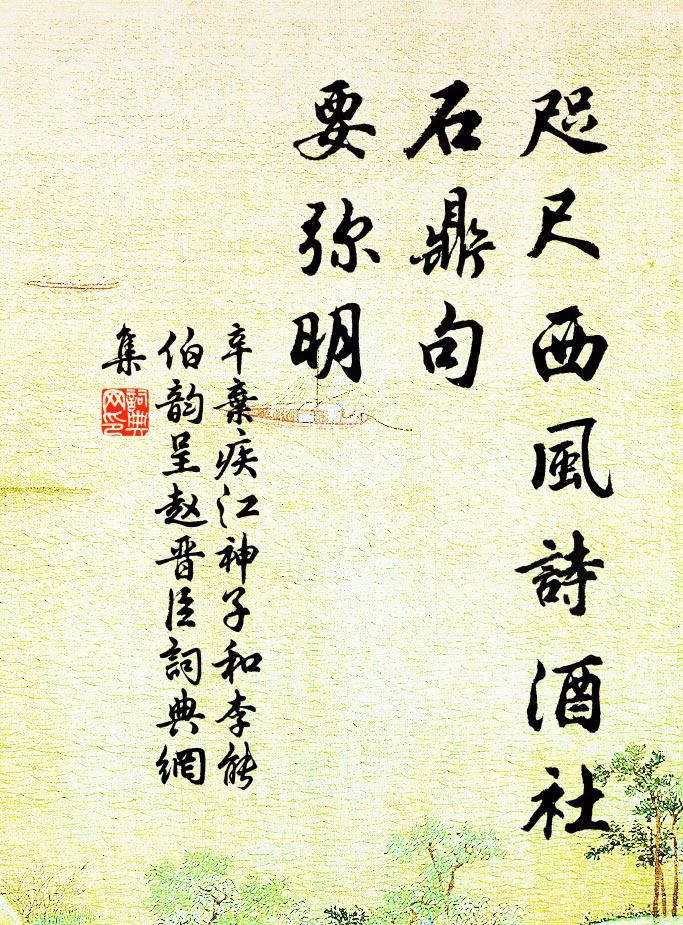 咫尺西風詩酒社
石鼎句
要弥明
辛棄疾江神子和李能
伯韵呈赵晋臣詞典網
集
詞典
网印